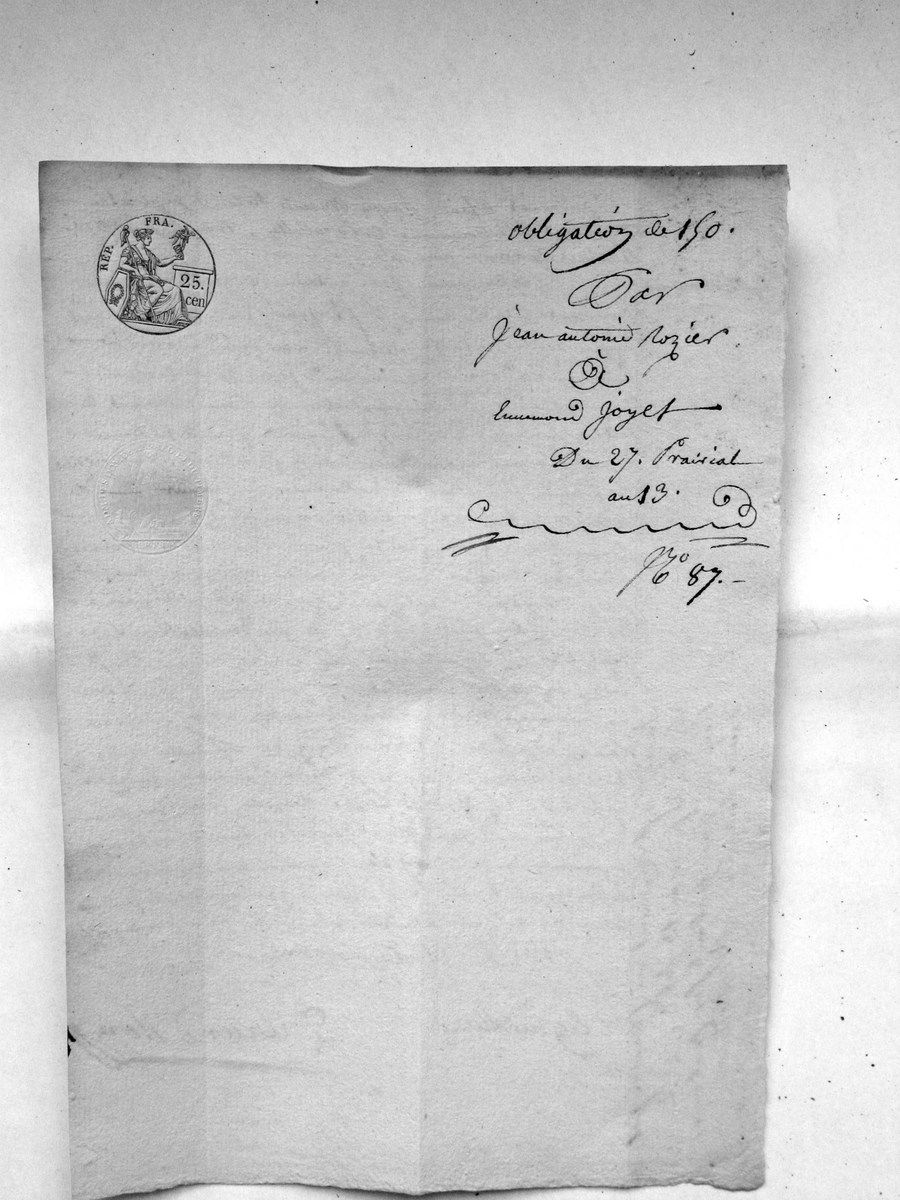 RÉP. FRA.
25.
cen
obligation de 150.
Par
jean antoine rozier.
À
Ennemond joyet
Du 27. Prairial
an 13.
No 87.-